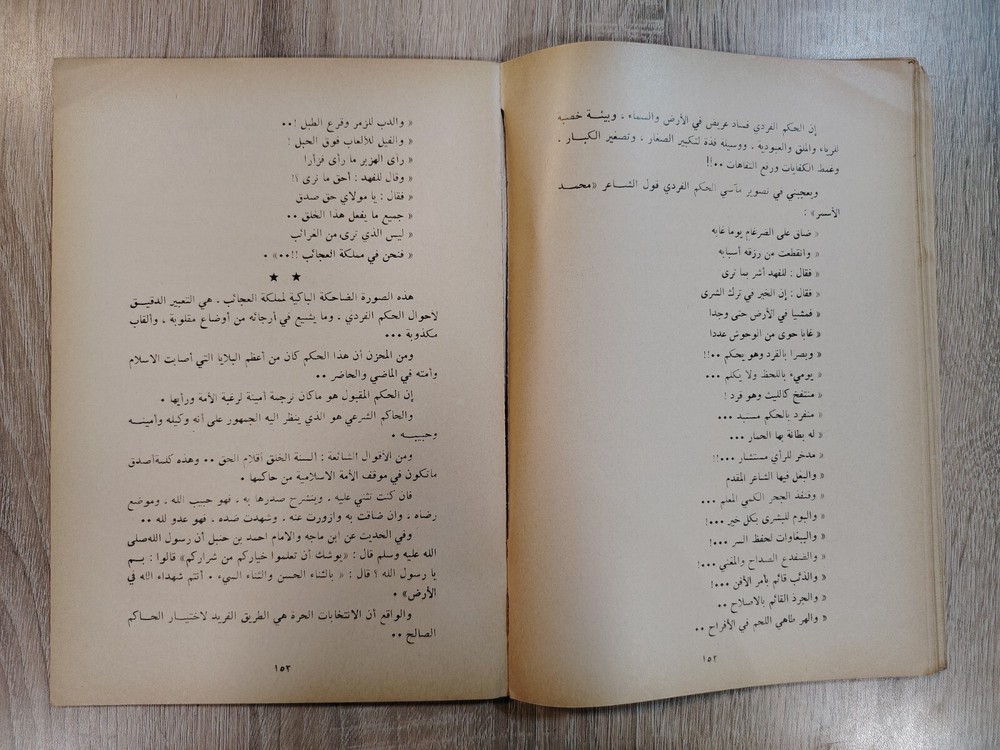 إن الحكم الفردي فساد عريض في الأرض والسماء ، وبيئة خصبة
للرياء والملق والعبودية ، ووسيلة فذة لتكبير الصغار ، وتصغير الكبار ،
وغمط الكفايات ورفع التفاهات ••!!
ويعجبني في تصوير مآسي الحكم الفردي قول الشاعر «محمد
الأسمر» :
« ضاق على الضرغام يوما غابه
« وانقطعت من رزقه أسبابه
« فقال : للفهد أشر بما ترى
« فقال : إن الخير في ترك الشرى
« فمشيا في الأرض حتى وجدا
« غابا حوى من الوحوش عددا
« وبصرا بالقرد وهو يحكم ••!!
« يومىء باللحظ ولا يكلم •••
« منتفخ كالليث وهو قرد !
« منفرد بالحكم مستبد •••
« له بطانة بها الحمار •••
« مدخر للرأي مستشار •••!!
« والبغل فيها الشاعر المقدم
« وقنفد الجحر الكمي المعلم •••
« واليوم للبشرى بكل خير •••!
« والببغاوات لحفظ السر •••!
« والضفدع الصداح والمغني •••!
« والذئب قائم بأمر الأفن •••!
« والجرذ القائم بالاصلاح ••
« والهر طاهي اللحم في الأفراح ••
١٥٢
« والدب للزمر وقرع الطبل !••
« والفيل للألعاب فوق الحبل !
« رأى الهزبر ما رأى فزأرا
« وقال للفهد : أحق ما نرى ؟!
« فقال : يا مولاي حق صدق
« جميع ما يفعل هذا الخلق ••
« ليس الذي ترى من الغرائب
« فنحن في مملكة العجائب !!••» •
★ ★
هذه الصورة الضاحكة الباكية لمملكة العجائب ، هي التعبير الدقيق
لاحوال الحكم الفردي ، وما يشيع في أرجائه من أوضاع مقلوبة ، وألقاب
مكذوبة •••
ومن المحزن أن هذا الحكم كان من أعظم البلايا التي أصابت الاسلام
وأمته في الماضي والحاضر ••
إن الحكم المقبول هو ماكان ترجمة أمينة لرغبة الأمة ورأيها •
والحاكم الشرعي هو الذي ينظر اليه الجمهور على أنه وكيله وأمينه
وحبيبه •
ومن الأقوال الشائعة : السنة الخلق أقلام الحق •• وهذه كلمةأصدق
ماتكون في موقف الأمة الاسلامية من حاكمها •
فان كنت تثني عليه ، وينشرح صدرها به ، فهو حبيب الله ، وموضع
رضاه ، وان ضاقت به وازورت عنه ، وشهدت ضده ، فهو عدو لله ••
وفي الحديث عن ابن ماجه والامام احمد بن حنبل أن رسول اللهصلى
الله عليه وسلم قال : «يوشك أن تعلموا خياركم من شراركم» قالوا : بم
يا رسول الله ؟ قال : « بالثناء الحسن والثناء السيء • أنتم شهداء الله في
الأرض» •
والواقع أن الانتخابات الحرة هي الطريق الفريد لاختيار الحاكم
الصالح ••
١٥٣